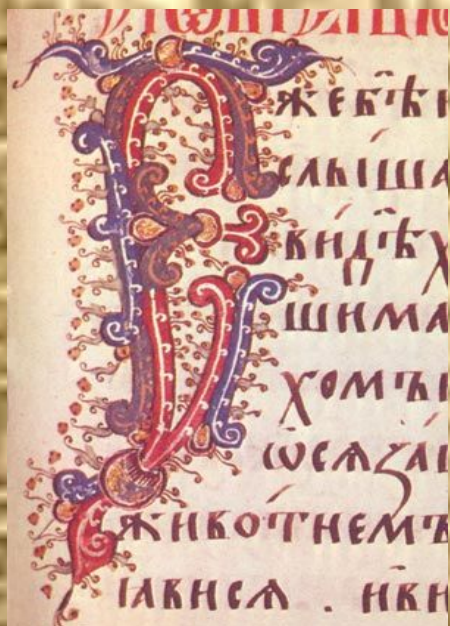 Еже бѣ и
слыша
видѣх
шима
хомъ
ѡсѧза
животнемъ
ꙗвисѧ . иви